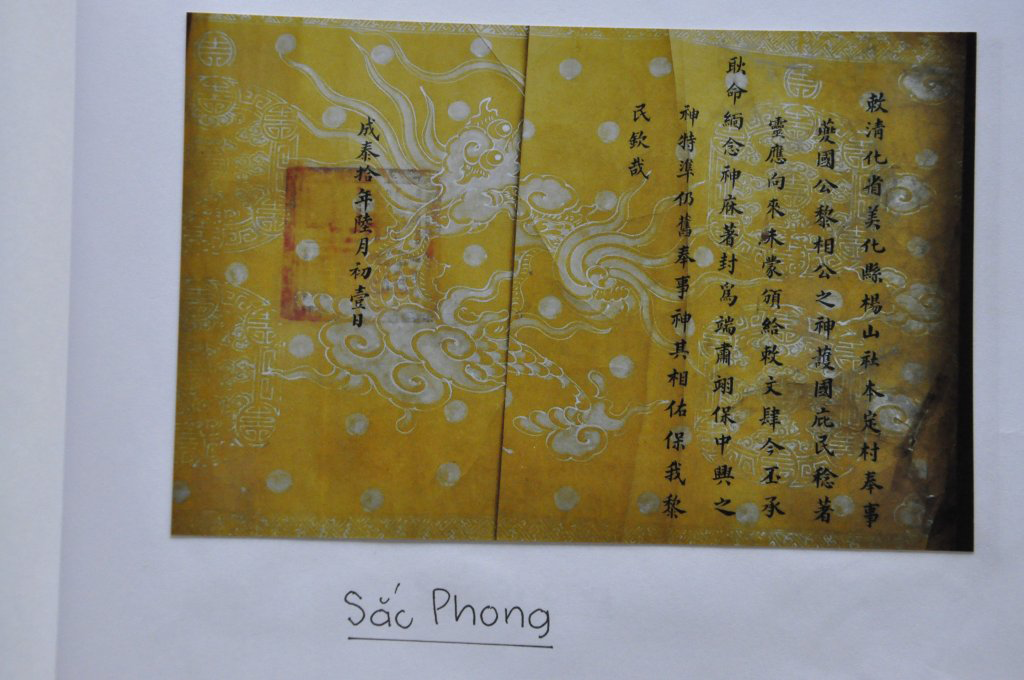 敕清化省美化縣楊山社本定村奉事
夔國公黎相公之神護國庇民稔著
靈應向來未蒙頒給敕文肆今丕承
耿命緬念神庥著封爲端肅翊保中興之
神特準仍舊奉事神其相佑保我黎
民欽哉
成泰拾年陸月初壹日
Sắc Phong